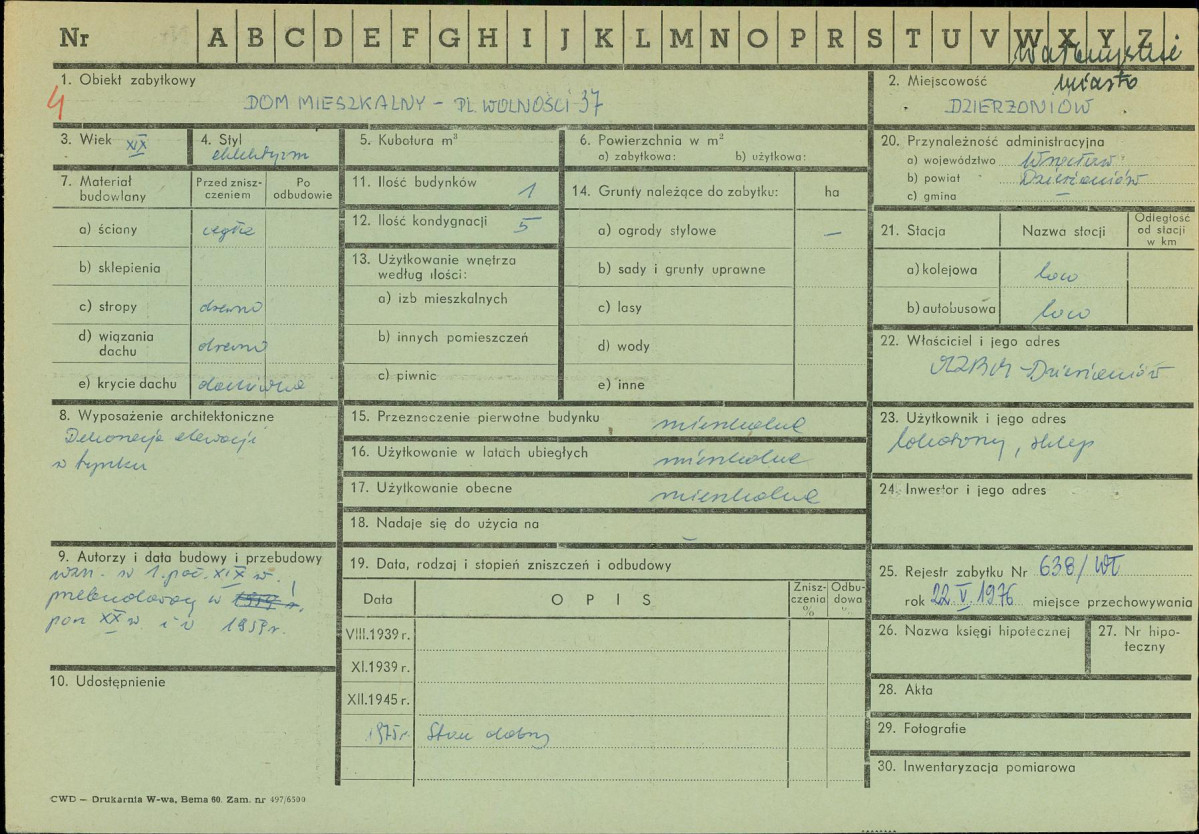 Nr A B C D E F G H I J K L M N O P R S T U V W X Y Z
Wałbrzyskie
1. Obiekt zabytkowy
4
DOM MIESZKALNY – PL. WOLNOŚCI 37
2. Miejscowość miasto
DZIERŻONIÓW
3. Wiek XIX
4. Styl
eklektyzm
5. Kubatura m³
6. Powierzchnia w m²
a) zabytkowa: b) użytkowa:
7. Materiał budowlany
Przed znisz-czeniem
Po odbudowie
a) ściany cegła
b) sklepienia
c) stropy drewno
d) wiązania dachu drewno
e) krycie dachu dachówka
8. Wyposażenie architektoniczne
Dekoracja elewacji
w tynku
9. Autorzy i data budowy i przebudowy
wzn. w 1. poł. XIX w.
przebudowany w
pocz. XX w. i w 1959 r.
10. Udostępnienie
11. Ilość budynków 1
12. Ilość kondygnacji 5
13. Użytkowanie wnętrza według ilości:
a) izb mieszkalnych
b) innych pomieszczeń
c) piwnic
14. Grunty należące do zabytku: ha
a) ogrody stylowe –
b) sady i grunty uprawne
c) lasy
d) wody
e) inne
15. Przeznaczenie pierwotne budynku mieszkalne
16. Użytkowanie w latach ubiegłych mieszkalne
17. Użytkowanie obecne mieszkalne
18. Nadaje się do użycia na –
19. Data, rodzaj i stopień zniszczeń i odbudowy
Data OPIS Znisz-czenia % Odbu-dowa %
VIII.1939 r.
XI.1939 r.
XII.1945 r.
1975 r. Stan dobry
20. Przynależność administracyjna
a) województwo Wrocław
b) powiat Dzierżoniów
c) gmina –
21. Stacja Nazwa stacji Odległość od stacji w km
a) kolejowa loco
b) autobusowa loco
22. Właściciel i jego adres
MZBM – Dzierżoniów
23. Użytkownik i jego adres
lokatorzy, sklep
24. Inwestor i jego adres
25. Rejestr zabytku Nr 638/Wł
rok 22 V 1976 miejsce przechowywania
26. Nazwa księgi hipotecznej
27. Nr hipo-teczny
28. Akta
29. Fotografie
30. Inwentaryzacja pomiarowa
CWD — Drukarnia W-wa, Bema 60. Zam. nr 497/6500